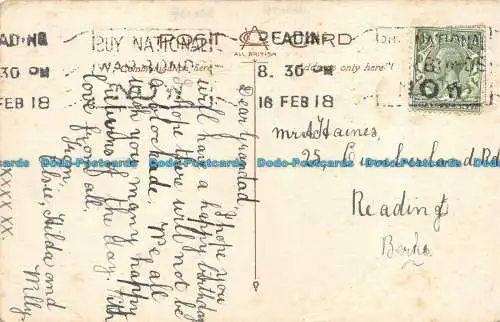 POST CARD
ALL BRITISH
Communication here
Address only here
READING
8.30 PM
18 FEB 18
BUY NATIONAL
WAR BONDS
NOW
NATIONAL
BONDS
NOW
EADING
30 PM
FEB 18
Dear Grandad,
I hope you
will have a happy birthday
I hope there will not be
a blockade. We all
wish you many happy
returns of the day with
love from all.
From,
Hilda and
Willy.
Mr A Haines,
25, Cumberland Rd
Reading
Berks.
Dodo-Postcards Dodo-Postcards Dodo-Postcards Dodo-Postcards Dodo-Postcards Dodo-Postcards